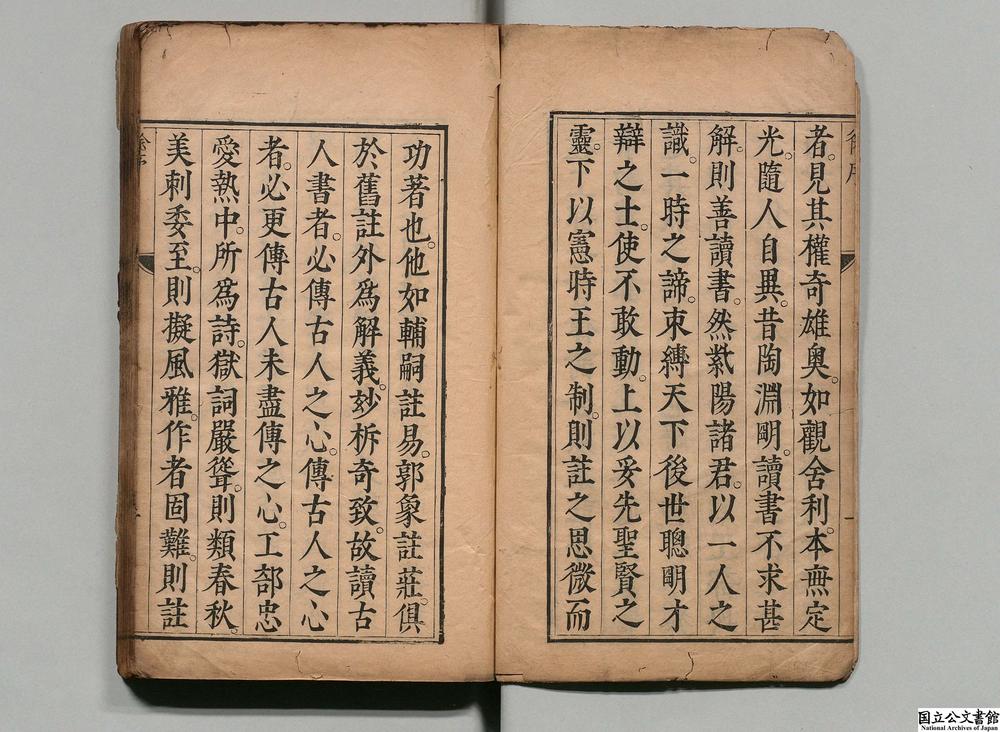 者。見其權奇雄奥。如觀舍利。本無定
光。隨人自異。昔陶淵明。讀書不求甚
解。則善讀書。然紫陽諸君。以一人之
識。一時之諦。束縛天下後世聰明才
辯之士。使不敢動。上以妥先聖賢之
靈。下以憲時王之制。則註之思微而
功著也。他如輔嗣註易。郭象註莊。俱
於舊註外爲解義。妙析奇致。故讀古
人書者。必傳古人之心。傳古人之心
者。必更傳古人未盡傳之心。工部忠
愛熱中。所爲詩。獄詞嚴聳。則類春秋。
美刺委至。則擬風雅。作者固難。則註
国立公文書館
National Archives of Japan